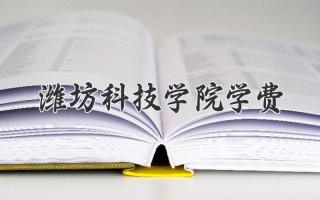 潍坊科技学院学费